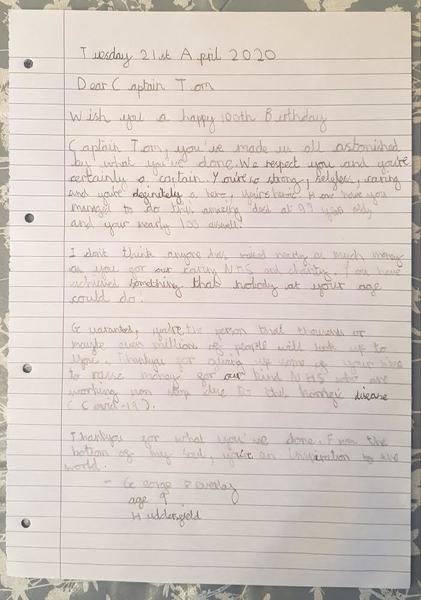 Tuesday 21st April 2020
Dear Captain Tom
Wish you a happy 100th Birthday
Captain Tom, you've made us all astonished
by what you've done. We respect you and you're
certainly a captain. You're so strong, caring
and you're definitely a hero, How have you
managed to do this amazing deed at 99 years old,
and your nearly 100 aswell!
I don't think anyone has raised nearly as much money
as you for our caring NHS and charity. You have
achieved something that nobody at your age
could do!
Guaranteed, you're the person that thousands or
maybe even million of people will look up to
you. Thankyou for giving up some of your time
to raise money for our kind NHS who are
working non stop due to this horrific disease
(Covid-19).
Thankyou for what you've done. From the
bottom of my soul, you're an inspiration to the
world.
- George
age 9
Huddersfield